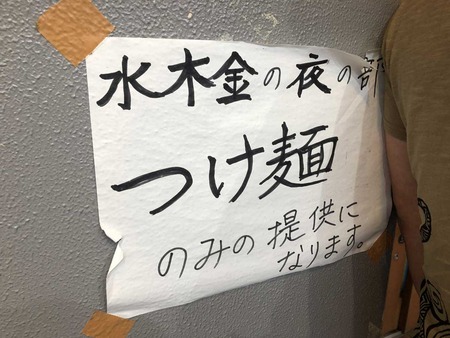 水木金の夜の部
つけ麺
のみの提供に
なります。